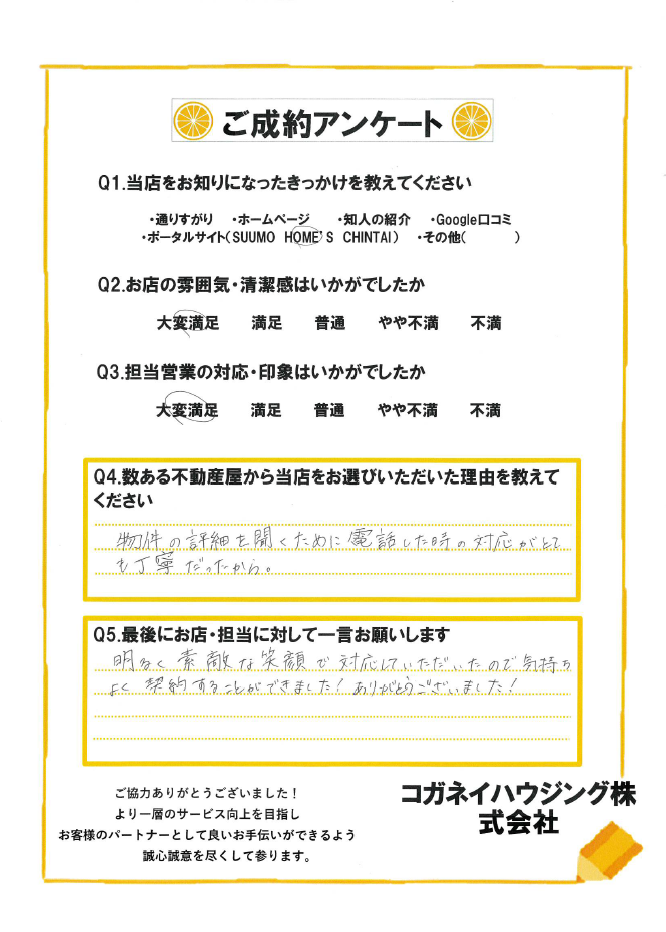 ご成約アンケート
Q1.当店をお知りになったきっかけを教えてください
・通りすがり ・ホームページ ・知人の紹介 ・Google口コミ
・ポータルサイト(SUUMO HOME'S CHINTAI) ・その他( )
Q2.お店の雰囲気・清潔感はいかがでしたか
大変満足 満足 普通 やや不満 不満
Q3.担当営業の対応・印象はいかがでしたか
大変満足 満足 普通 やや不満 不満
Q4.数ある不動産屋から当店をお選びいただいた理由を教えて
ください
物件の詳細を聞くために電話した時の対応がとて
も丁寧だったから。
Q5.最後にお店・担当に対して一言お願いします
明るく素敵な笑顔で対応していただいたので気持ち
よく契約することができました!ありがとうございました!
ご協力ありがとうございました!
より一層のサービス向上を目指し
お客様のパートナーとして良いお手伝いができるよう
誠心誠意を尽くして参ります。
コガネイハウジング株
式会社